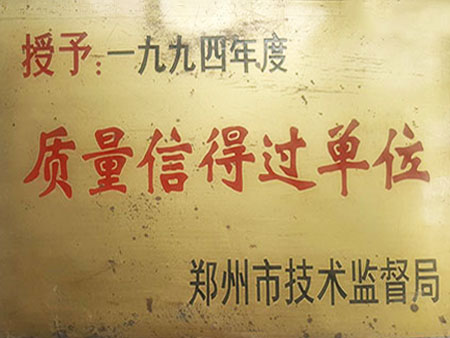 授予：一九九四年度
质量信得过单位
郑州市技术监督局